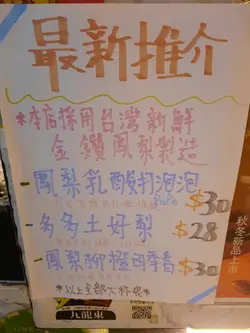 最新推介
*本店採用台灣新鮮
金鑽鳳梨製造
-鳳梨乳酸打泡泡
PoPo
$30
-多多土好梨
$28
-鳳梨柳橙四季春
$30
*以上全部大杯裝*
九龍東
秋冬新品上市